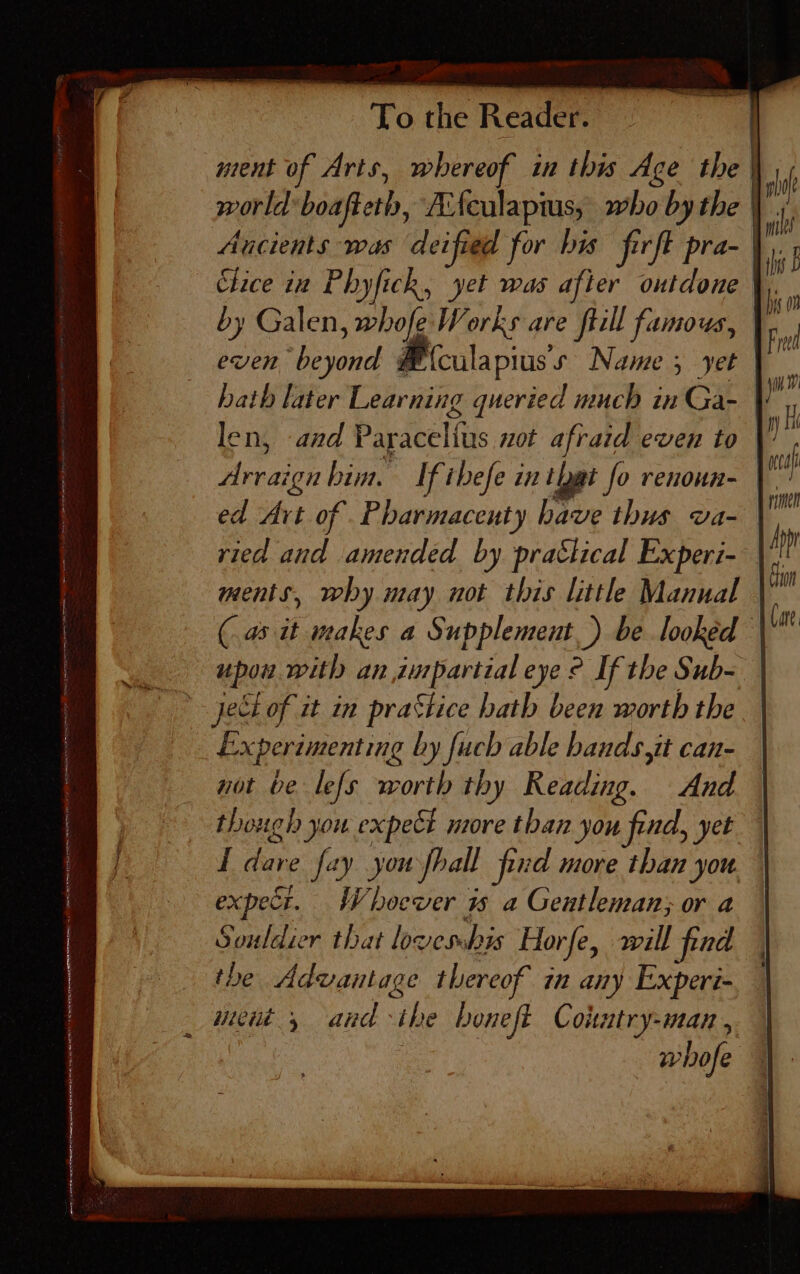 To the Reader.
ment of Arts, whereof in this Age the
world boaſteth, Æſculapius, who by the
Ancients was deified for his firſt pra-
ctice in Phyſick, yet was after outdone
by Galen, whoſe Works are ſtill famous,
even beyond Æſculapius's Name; yet
hath later Learning queried much in Ga-
len, and Paracelſus not afraid even to
Arraign him. If theſe in that ſo renoun-
ed Art of Pharmaceuty have thus va-
ried and amended by practical Experi-
ments, why may not this little Manual
(as it makes a Supplement) be looked
upon with an impartial eye? If the Sub-
ject of it in practice hath been worth the
Experimenting by ſuch able hands, it can-
not be leſs worth thy Reading. And
though you expect more than you find, yet
I dare ſay you ſhall find more than you
expect. Whoever is a Gentleman, or a
Souldier that loves his Horſe, will find
the Advantage thereof in any Experi-
ment; and the honeſt Country-man,
whoſe
whoſe
miles
this
his
Freed
you
my
occaſi
rimen
Appr
ction
Care